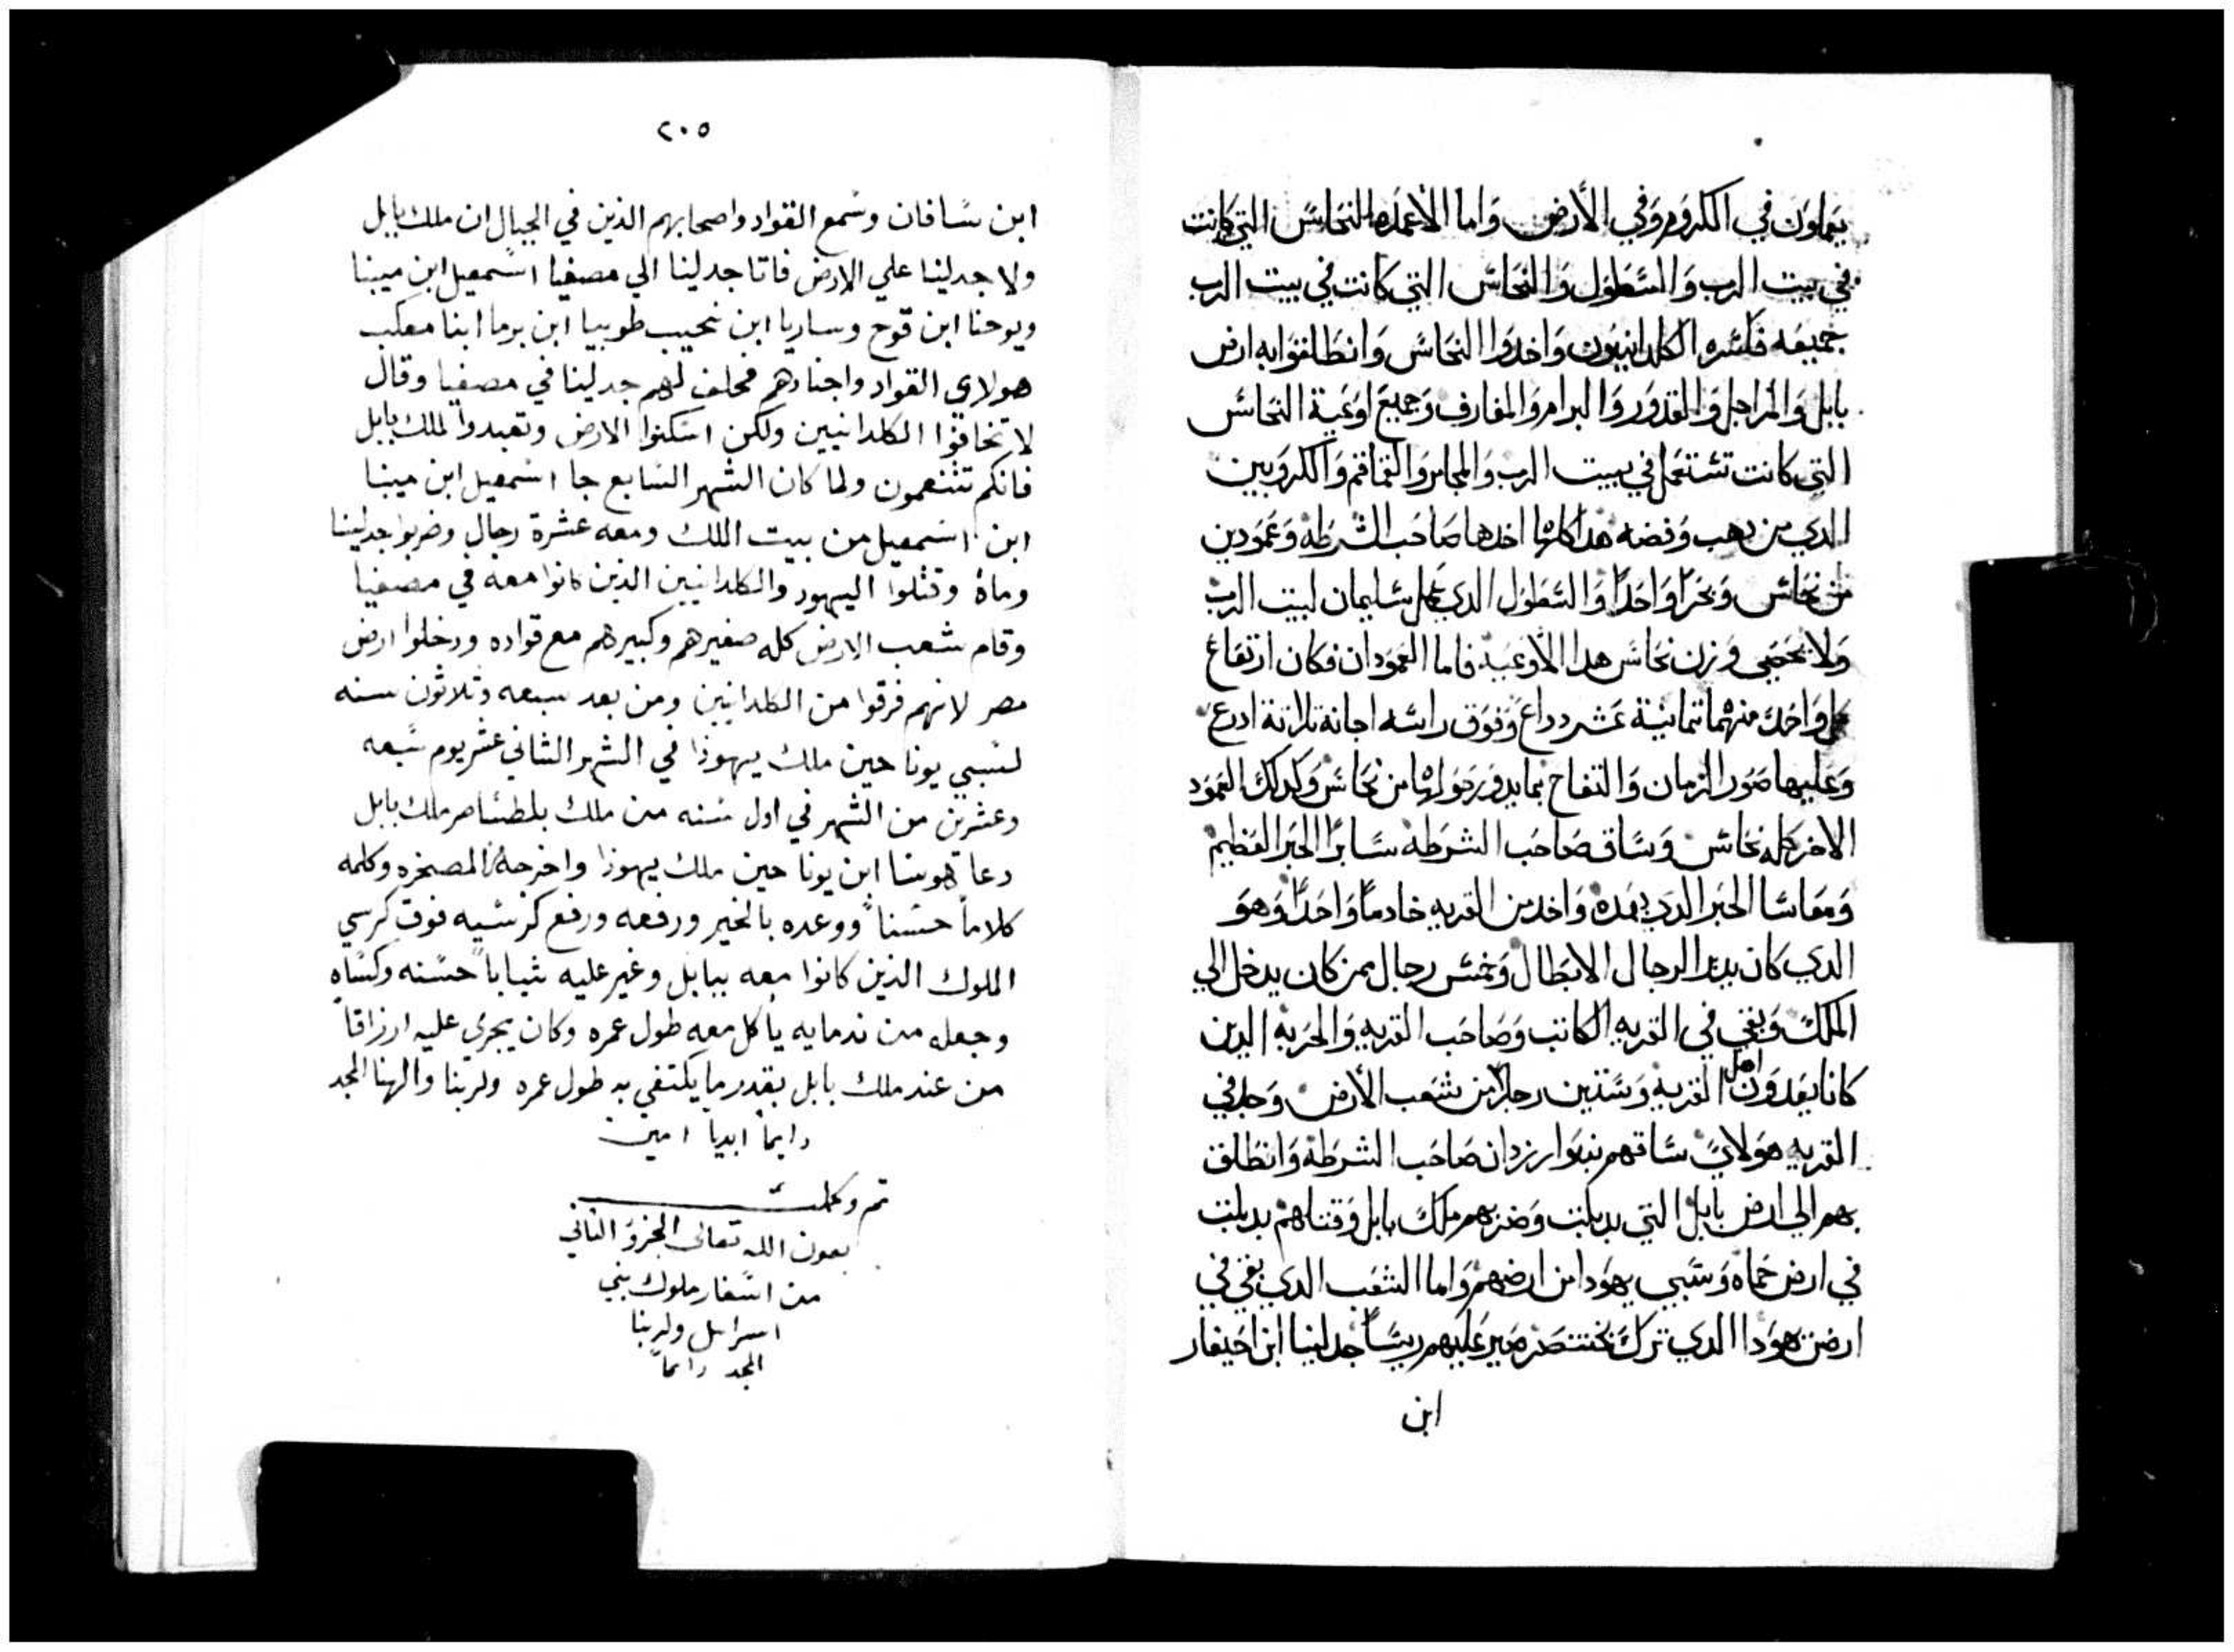 يعملون في الكروم وفي الأرض واما الأعمده النحاس التي كانت
في بيت الرب والسطول والنحاس التي كانت في بيت الرب
جميعه فكسره الكلدانيون واخدوا النحاس وانطلقوا به ارض
بابل والمراجل والقدور والبرامر والمغارف وجميع اوعية النحاس
التي كانت تستعمل في بيت الرب والمجامر والقماقم والكروبين
الدي من دهب وفضه هدا كلها اخدها صاحب الشرطه وعمودين
من نحاس وبحرا واحدا والسطول الدي عمل سليمان لبيت الرب
ولا يحصي وزن نحاس هدا الأوعيه فاما العمودان فكان ارتفاع
كل واحد منهما تمانية عشر دراع وفوق راسه اجانة تلاتة ادرع
وعليها صور الرمان والتفاح بما يدور حولها من نحاس وكدلك العمود
الاخر كله نحاس وساق صاحب الشرطه سابرا الحبر العظيم
ومعاسا الحبر الدي بعده واخد من القريه خادماً واحداً وهو
الدي كان بيد الرجال الابطال وخمس رجال ممن كان يدخل الي
الملك وبقي في القريه الكاتب وصاحب القريه والحربه الدين
كانا يعدون اهل القريه وستين رجلا من شعب الأرض وجد في
القريه هولاي ساقهم نبوارزدان صاحب الشرطه وانطلق
بهم الي ارض بابل التي بدبلت وضربهم ملك بابل وقتلهم بدبلت
في ارض حماه وسبي يهودا من ارضهم واما الشعب الدي بقي في
ارض يهودا الدي ترك بختنصر صير عليهم ريساً جدلينا ابن احيقار
ابن
٢٠٥
ابن سافان وسمع القواد واصحابهم الذين في الجبال ان ملك بابل
ولا جدلينا علي الارض فاتا جدلينا الي مصفيا اسمعيل ابن ميبنا
ويوحنا ابن قوح وساريا ابن نحيب طوبيا ابن برما ابنا معكب
هولاي القواد واجنادهم فحلف لهم جدلينا في مصفيا وقال
لا تخافوا الكلدانيين ولكن اسكنوا الارض وتعبدوا لملك بابل
فانكم تتنعمون ولما كان الشهر السابع جا اسمعيل ابن ميبنا
ابن اسمعيل من بيت الملك ومعه عشرة رجال وضربوا جدلينا
وماة وقتلوا اليهود والكلدانيين الذين كانوا معه في مصفيا
وقام شعب الارض كله صغيرهم وكبيرهم مع قواده ودخلوا ارض
مصر لانهم فرقوا من الكلدانيين ومن بعد سبعه وثلاثون سنه
لسبي يونا حين ملك يهوذا في الشهر الثاني عشر يوم سبعه
وعشرين من الشهر في اول سنه من ملك بلطشاصر ملك بابل
دعا هوسا ابن يونا حين ملك يهوذا واخرجه المصخره وكلمه
كلاماً حسناً ووعده بالخير ورفعه ورفع كرسيه فوق كرسي
الملوك الذين كانوا معه ببابل وغير عليه ثياباً حسنه وكساه
وجعله من ندمايه ياكل معه طول عمره وكان يجري عليه ارزاقاً
من عند ملك بابل بقدر ما يكتفي به طول عمره ولربنا والهنا المجد
دايماً ابديا امين
تم وكمل
بعون الله تعالى الجزو الثاني
من اسفار ملوك بني
اسرايل ولربنا
المجد دايماً